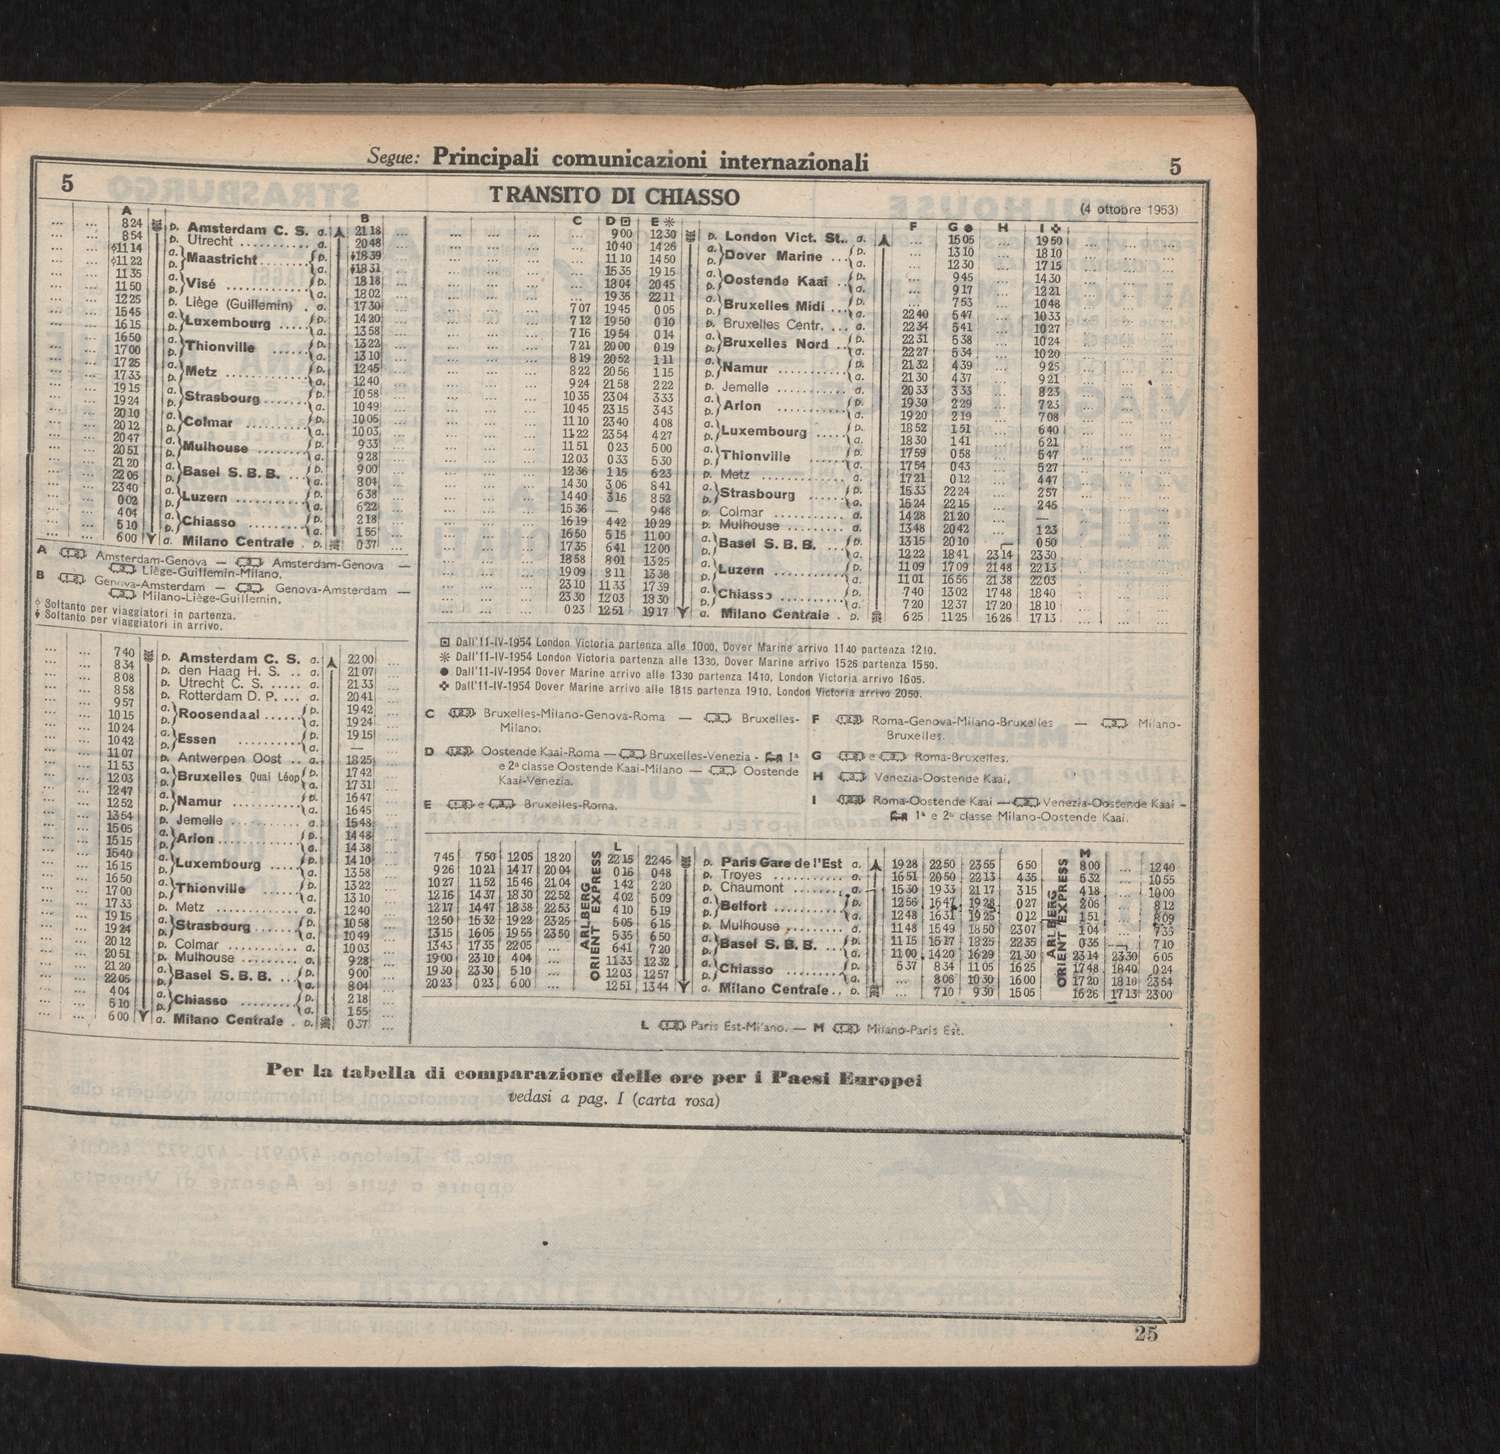 Segue: Principali comunicazioni internazionali 5
5 TRANSITO DI CHIASSO (4 ottobre 1953)
A B
8 24 p. Amsterdam C. S. a. 21 18
8 54 p. Utrecht a. 20 48
11 14 a. Maastricht p. 18 39
11 22 p. a. 18 31
11 35 a. Visé p. 18 18
11 50 p. a. 18 02
12 25 p. Liège (Guillemin) a. 17 30
15 45 a. Luxembourg p. 14 20
16 15 p. a. 13 58
16 50 a. Thionville p. 13 22
17 00 p. a. 13 10
17 25 a. Metz p. 12 45
17 33 p. a. 12 40
19 15 a. Strasbourg p. 10 58
19 24 p. a. 10 49
20 10 a. Colmar p. 10 06
20 12 p. a. 10 03
20 47 a. Mulhouse p. 9 33
20 51 p. a. 9 28
21 20 a. Basel S. B. B. p. 9 00
22 05 p. a. 8 04
23 40 a. Luzern p. 6 38
0 02 p. a. 6 22
4 04 a. Chiasso p. 2 18
5 10 p. a. 1 55
6 00 a. Milano Centrale p. 0 37
A Amsterdam-Genova — Amsterdam-Genova —
Liège-Guillemin-Milano.
B Genova-Amsterdam — Genova-Amsterdam —
Milano-Liège-Guillemin.
Soltanto per viaggiatori in partenza.
Soltanto per viaggiatori in arrivo.
7 40 p. Amsterdam C. S. a. 22 00
8 34 p. den Haag H. S. a. 21 07
8 08 p. Utrecht C. S. a. 21 33
8 58 p. Rotterdam D. P. a. 20 41
9 57 a. Roosendaal p. 19 42
10 15 p. a. 19 24
10 24 a. Essen p. 19 15
10 42 p. a. —
11 07 p. Antwerpen Oost a. 18 25
11 53 a. Bruxelles Quai Léop. p. 17 42
12 03 p. a. 17 31
12 47 a. Namur p. 16 47
12 52 p. a. 16 45
13 54 p. Jemelle a. 15 48
15 05 a. Arlon p. 14 48
15 15 p. a. 14 38
15 40 a. Luxembourg p. 14 10
16 15 p. a. 13 58
16 50 a. Thionville p. 13 22
17 00 p. a. 13 10
17 33 p. Metz a. 12 40
19 15 a. Strasbourg p. 10 58
19 24 p. a. 10 49
20 12 p. Colmar a. 10 03
20 51 p. Mulhouse a. 9 28
21 20 a. Basel S. B. B. p. 9 00
22 05 p. a. 8 04
4 04 a. Chiasso p. 2 18
5 10 p. a. 1 55
6 00 a. Milano Centrale p. 0 37
C D E F G H I
... 9 00 12 30 p. London Vict. St. a. ... 15 05 ... 19 50
... 10 40 14 26 a. Dover Marine p. ... 13 10 ... 18 10
... 11 10 14 50 p. a. ... 12 30 ... 17 15
... 15 35 19 15 a. Oostende Kaai p. ... 9 45 ... 14 30
... 18 04 20 45 p. a. ... 9 17 ... 12 21
... 19 35 22 11 a. Bruxelles Midi p. ... 7 53 ... 10 48
7 07 19 45 0 05 p. a. 22 40 5 47 10 33
7 12 19 50 0 10 p. Bruxelles Centr. a. 22 34 5 41 10 27
7 16 19 54 0 14 a. Bruxelles Nord p. 22 31 5 38 10 24
7 21 20 00 0 19 p. a. 22 27 5 34 10 20
8 19 20 52 1 11 a. Namur p. 21 32 4 39 9 25
8 22 20 56 1 15 p. a. 21 30 4 37 9 21
9 24 21 58 2 22 p. Jemelle a. 20 33 3 33 8 23
10 35 23 04 3 33 a. Arlon p. 19 30 2 29 7 23
10 45 23 15 3 43 p. a. 19 20 2 19 7 08
11 10 23 40 4 08 a. Luxembourg p. 18 52 1 51 6 40
11 22 23 54 4 27 p. a. 18 30 1 41 6 21
11 51 0 23 5 00 a. Thionville p. 17 59 0 58 5 47
12 03 0 33 5 30 p. a. 17 54 0 43 5 27
12 36 1 15 6 23 p. Metz a. 17 21 0 12 4 47
14 30 3 06 8 41 a. Strasbourg p. 15 33 22 24 2 57
14 40 3 16 8 52 p. a. 15 24 22 15 2 45
15 36 — 9 48 p. Colmar a. 14 28 21 20 —
16 19 4 42 10 29 p. Mulhouse a. 13 48 20 42 1 23
16 50 5 15 11 00 a. Basel S. B. B. p. 13 15 20 10 0 50
17 35 6 41 12 00 p. a. 12 22 18 41 23 14 23 30
18 58 8 01 13 25 a. Luzern p. 11 09 17 09 21 48 22 13
19 09 8 11 13 38 p. a. 11 01 16 56 21 38 22 03
23 10 11 33 17 39 a. Chiasso p. 7 40 13 02 17 48 18 40
23 30 12 03 18 30 p. a. 7 20 12 37 17 20 18 10
0 23 12 51 19 17 a. Milano Centrale p. 6 25 11 25 16 26 17 13
Dall'11-IV-1954 London Victoria partenza alle 1000, Dover Marine arrivo 1140 partenza 1210.
Dall'11-IV-1954 London Victoria partenza alle 1330, Dover Marine arrivo 1526 partenza 1550.
Dall'11-IV-1954 Dover Marine arrivo alle 1330 partenza 1410, London Victoria arrivo 1605.
Dall'11-IV-1954 Dover Marine arrivo alle 1815 partenza 1910, London Victoria arrivo 2050.
C Bruxelles-Milano-Genova-Roma — Bruxelles-
Milano.
D Oostende Kaai-Roma — Bruxelles-Venezia - 1ª
e 2ª classe Oostende Kaai-Milano — Oostende
Kaai-Venezia.
E e Bruxelles-Roma.
F Roma-Genova-Milano-Bruxelles — Milano-
Bruxelles.
G e Roma-Bruxelles.
H Venezia-Oostende Kaai.
I Roma-Oostende Kaai — Venezia-Oostende Kaai -
1ª e 2ª classe Milano-Oostende Kaai.
L M
ARLBERG ORIENT EXPRESS
ARLBERG ORIENT EXPRESS
7 45 7 50 12 05 18 20 22 15 22 45 p. Paris Gare de l'Est a. 19 28 22 50 23 55 6 50 8 00 ... 12 40
9 26 10 21 14 17 20 04 0 16 0 48 p. Troyes a. 16 51 20 50 22 13 4 35 5 32 ... 10 55
10 27 11 52 15 46 21 04 1 42 2 20 p. Chaumont a. 15 30 19 33 21 17 3 15 4 18 ... 10 00
12 16 14 37 18 30 22 52 4 02 5 09 a. Belfort p. 12 56 16 47 19 28 0 27 2 06 ... 8 12
12 17 14 47 18 38 22 53 4 10 5 19 p. a. 12 48 16 31 19 25 0 12 1 51 ... 8 09
12 50 15 32 19 22 23 25 5 05 6 15 p. Mulhouse a. 11 48 15 49 18 50 23 07 1 04 ... 7 35
13 15 16 05 19 55 23 50 5 35 6 50 a. Basel S. B. B. p. 11 15 15 17 18 25 22 35 0 35 7 10
13 43 17 35 22 05 ... 6 41 7 20 p. a. 11 00 14 20 16 29 21 30 23 14 23 30 6 05
19 00 23 10 4 04 ... 11 33 12 32 a. Chiasso p. 5 37 8 34 11 05 16 25 17 48 18 40 0 24
19 30 23 30 5 10 ... 12 03 12 57 p. a. ... 8 06 10 30 16 00 17 20 18 10 23 54
20 23 0 23 6 00 ... 12 51 13 44 a. Milano Centrale p. ... 7 10 9 30 15 05 16 26 17 13 23 00
L Paris Est-Milano. — M Milano-Paris Est.
Per la tabella di comparazione delle ore per i Paesi Europei
vedasi a pag. I (carta rosa)
25